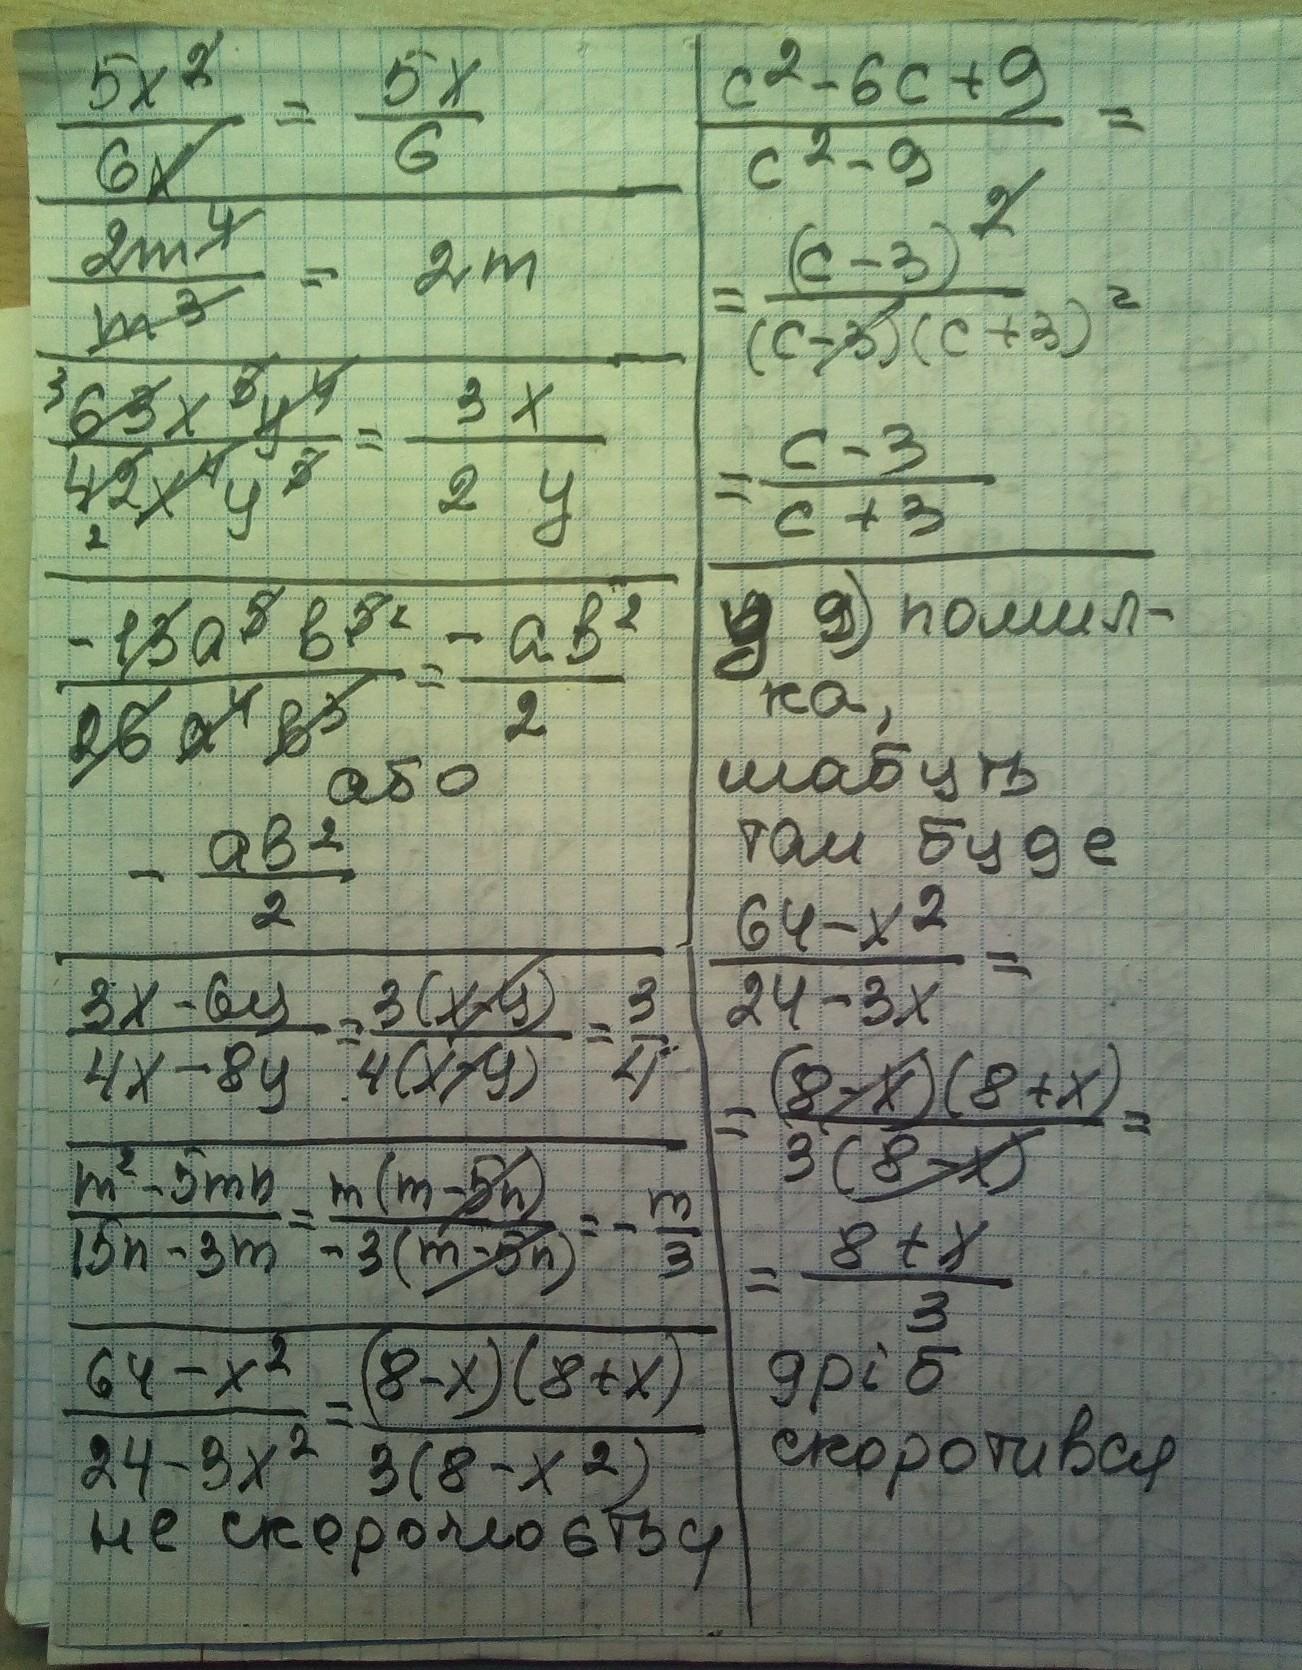 5x²/6x = 5x/6
2m⁴/m³ = 2m
³63x⁵y⁴/42x⁴y⁵ ₂ = 3x/2y
-13a⁵b⁵ ²/26a⁴b³ = -ab²/2
або
- ab²/2
3x-6y/4x-8y = 3(x-y)/4(x-y) = 3/4
m²-5mn/15n-3m = m(m-5n)/-3(m-5n) = -m/3
64-x²/24-3x² = (8-x)(8+x)/3(8-x2)
не скорочюється
c²-6c+9/c²-9 =
= (c-3)²/(c-3)(c+3)²
= c-3/c+3
у д) помил-
ка,
мабуть
там буде
64-x2/24-3x =
= (8-x)(8+x)/3(8-x) =
= 8+x/3
дріб
скоротився